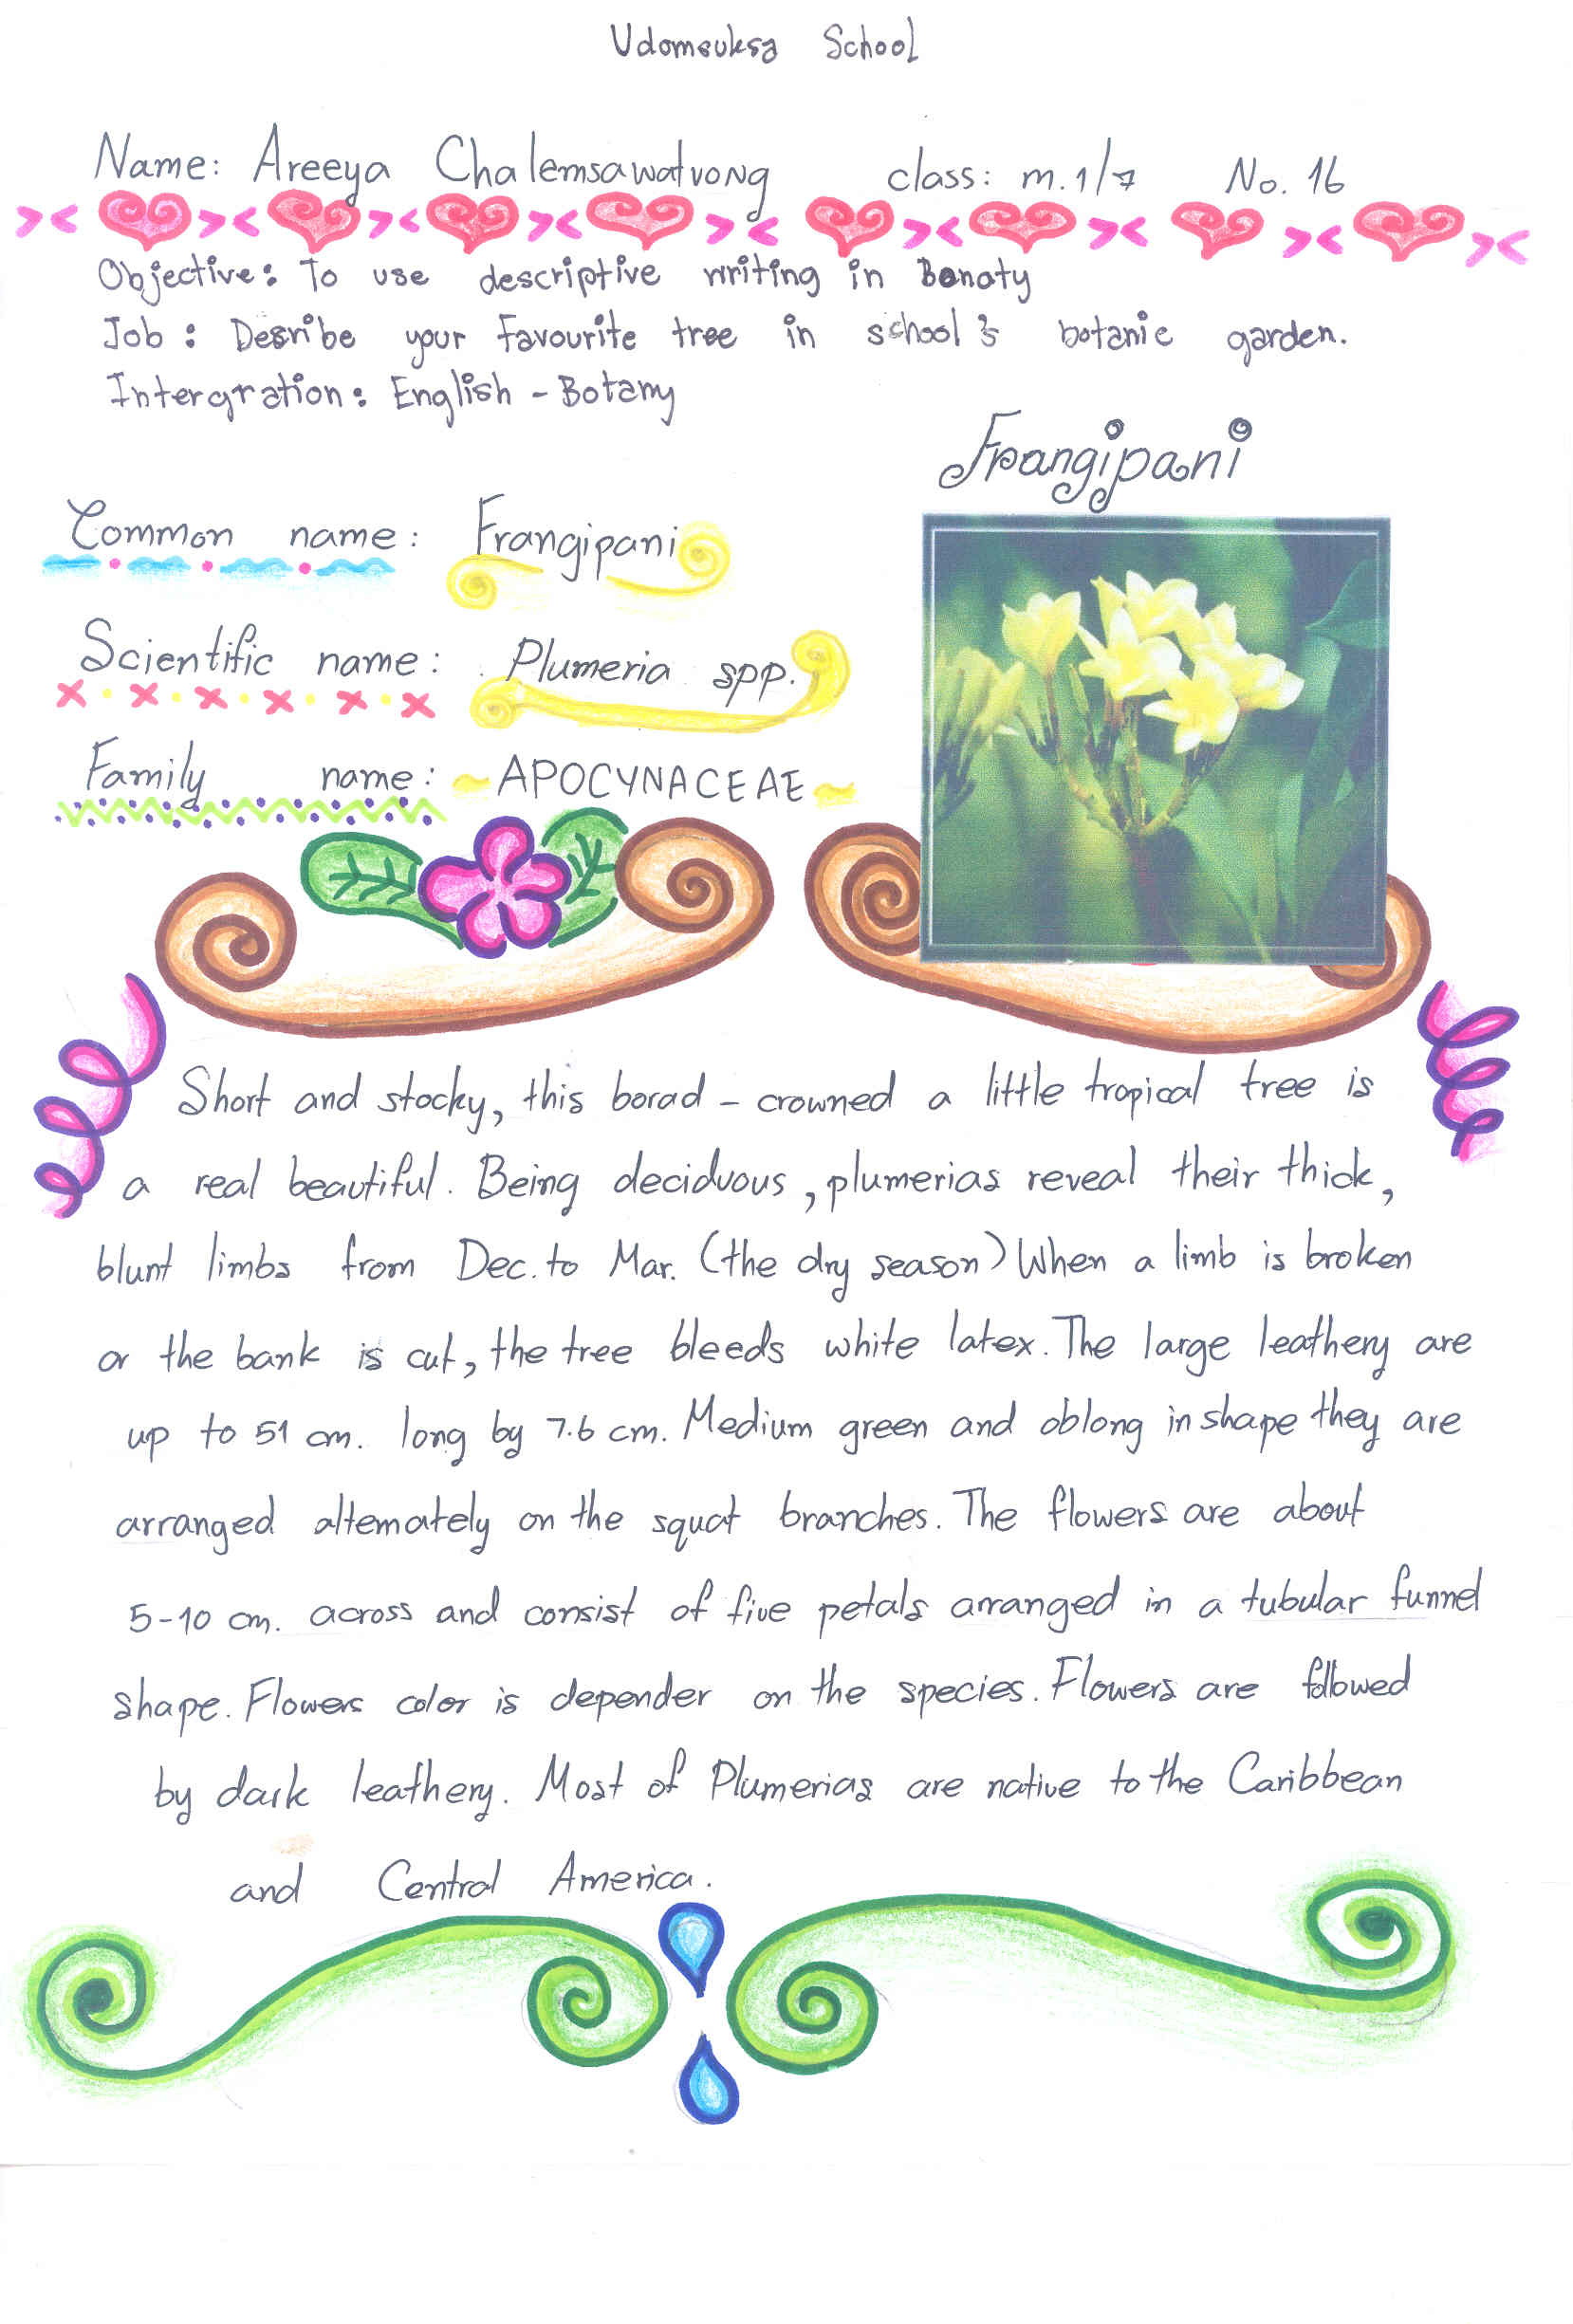 Udomsuksa School
Name: Areeya Chalemsawatvong class: m.1/7 No. 16
Objective: To use descriptive writing in Bonaty
Job: Desribe your favourite tree in school's botanic garden.
Intergration: English - Botany
Frangipani
Common name: Frangipani
Scientific name: Plumeria spp.
Family name: APOCYNACEAE
Short and stocky, this borad - crowned a little tropical tree is
a real beautiful. Being deciduous, plumerias reveal their thick,
blunt limbs from Dec. to Mar. (the dry season) When a limb is broken
or the bank is cut, the tree bleeds white latex. The large leathery are
up to 51 cm. long by 7.6 cm. Medium green and oblong in shape they are
arranged altemately on the squat branches. The flowers are about
5-10 cm. across and consist of five petals arranged in a tubular funnel
shape. Flowers color is depender on the species. Flowers are followed
by dark leathery. Most of Plumerias are native to the Caribbean
and Central America.